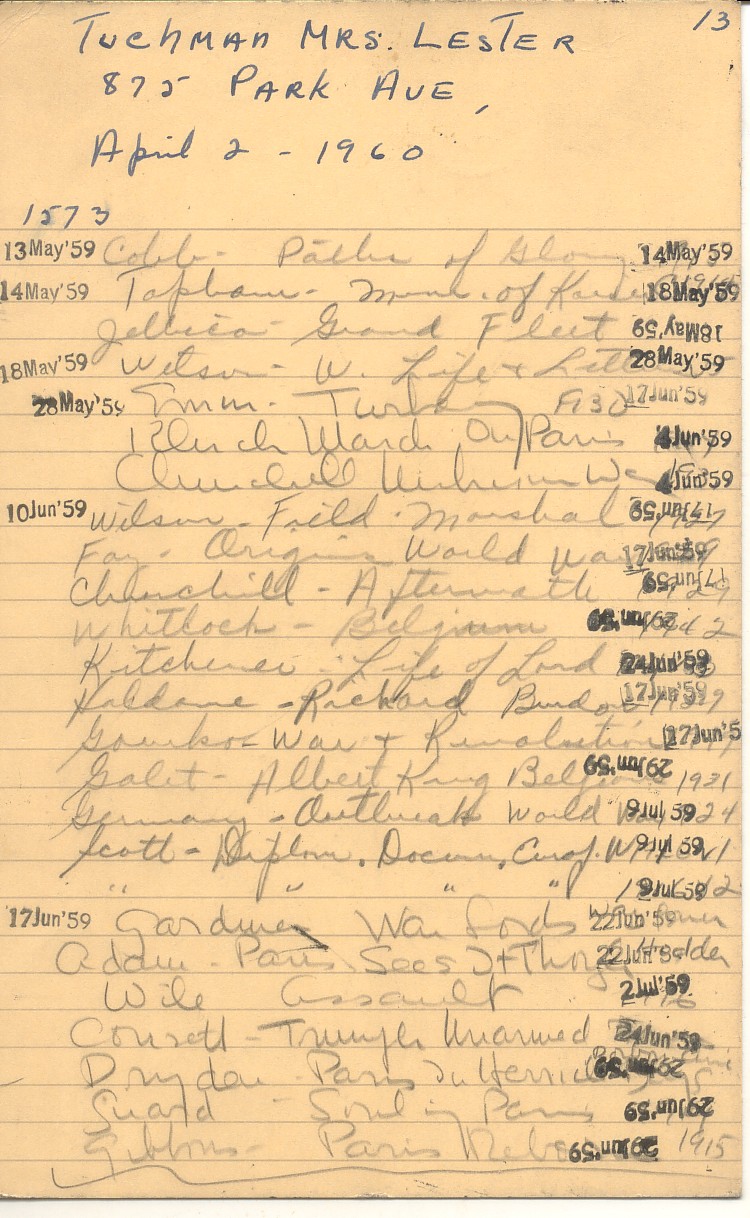 13
TUCHMAN MRS. LESTER
875 PARK AVE,
April 2 - 1960
1573
13May'59 Cobb - Paths of Glory 14May'59
14May'59 Topham - Mem. of Kaiser 18May'59
Jellicoe - Grand Fleet 18May'59
18May'59 Wilson - W. Life & Lett 28May'59
28May'59 Emm. - Turkey 1930 17Jun'59
March On Paris 4Jun'59
Churchill Unknown War 4Jun'59
10Jun'59 Wilson - Field Marshal 17Jun'59 1927
Fay - Origins World War 17Jun'59
Churchill - Aftermath 17Jun'59 29
Whitlock - Belgium 29Jun'59 2
Kitchener - Life of Lord 24Jun'59
Haldane - Richard Burdon 17Jun'59
Gourko - War & Revolution 17Jun'5
Galet - Albert King Belgium 29Jun'59 1931
Germany - Outbreak World War 8Jul'59 24
Scott - Diplom. Docum. 9Jul'59
" " " " 9Jul'59
17Jun'59 Gardiner War Lords 22Jun'59
Adam - Paris Sees It Through 22Jun'59 Hodder
Wile Assault 2Jul'59 16
Consett - Triumph Unarmed 24Jun'59
Dryden - Paris In Herrick Days 29Jun'59
Guard - Soul in Paris 29Jun'59
Gibbons - Paris Reborn 29Jun'59 1915